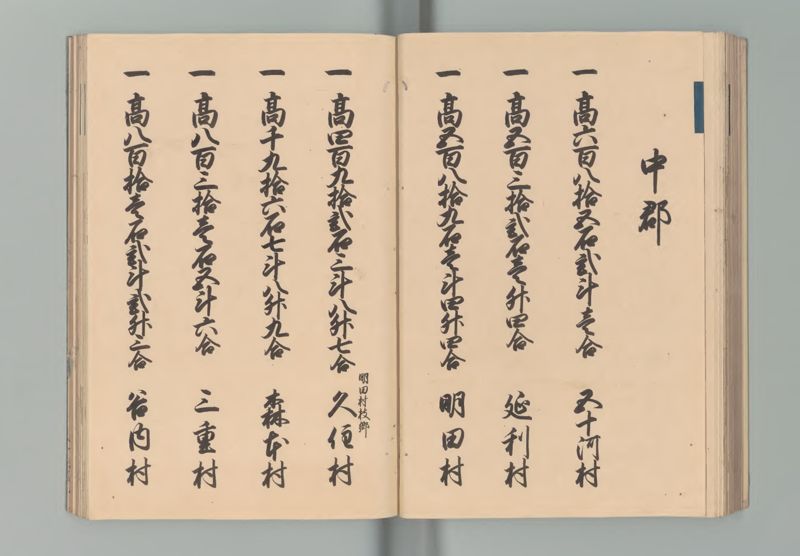 中郡
一 高六百八拾五石弐斗壱合 五十河村
一 高五百三拾弐石壱升四合 延利村
一 高五百八拾九石壱斗四升四合 明田村
明田村枝郷
一 高四百九拾弐石三斗八升七合 久住村
一 高千九拾六石七斗八升九合 森本村
一 高八百三拾壱石五斗六合 三重村
一 高八百拾壱石弐斗弐升二合 谷内村